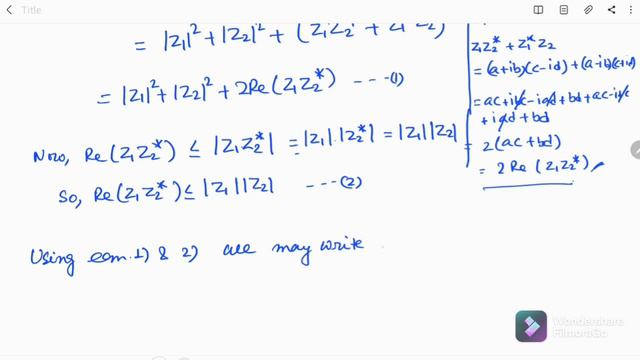 Title
= |z1|² + |z2|² + (z1z2* + z1*z2)
= |z1|² + |z2|² + 2Re(z1z2*) ---(1)
Now, Re(z1z2*) ≤ |z1z2*| = |z1|.|z2*| = |z1||z2|
So, Re(z1z2*) ≤ |z1||z2| ---(2)
Using eqn. 1) & 2) we may write
z1z2* + z1*z2
= (a+ib)(c-id) + (a-ib)(c+id)
= ac + ibc - iad + bd + ac - ibc
+ iad + bd
= 2(ac + bd)
= 2 Re (z1z2*)
Wondershare
FilmoraGo